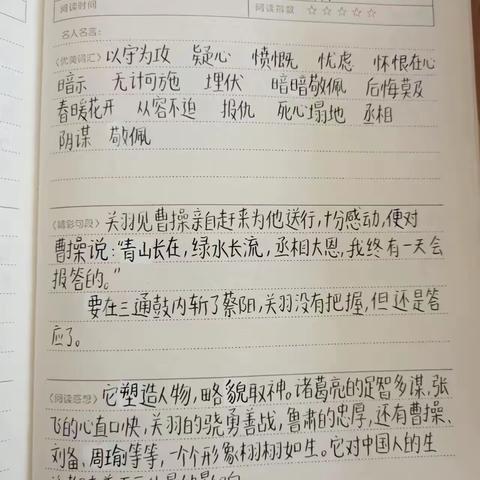 阅读时间 阅读指数 ☆☆☆☆☆
名人名言:
《优美词汇》以守为攻 疑心 愤慨 忧虑 怀恨在心
暗示 无计可施 埋伏 暗暗敬佩 后悔莫及
春暖花开 从容不迫 报仇 死心塌地 丞相
阴谋 敬佩
《精彩句段》关羽见曹操亲自赶来为他送行,十分感动,便对
曹操说:“青山长在,绿水长流,丞相大恩,我终有一天会
报答的。”
要在三通鼓内斩了蔡阳,关羽没有把握,但还是答
应了。
《阅读感想》它塑造人物,略貌取神。诸葛亮的足智多谋,张
飞的心直口快,关羽的骁勇善战,鲁肃的忠厚,还有曹操、
刘备、周瑜等等,一个个形象栩栩如生。它对中国人的生